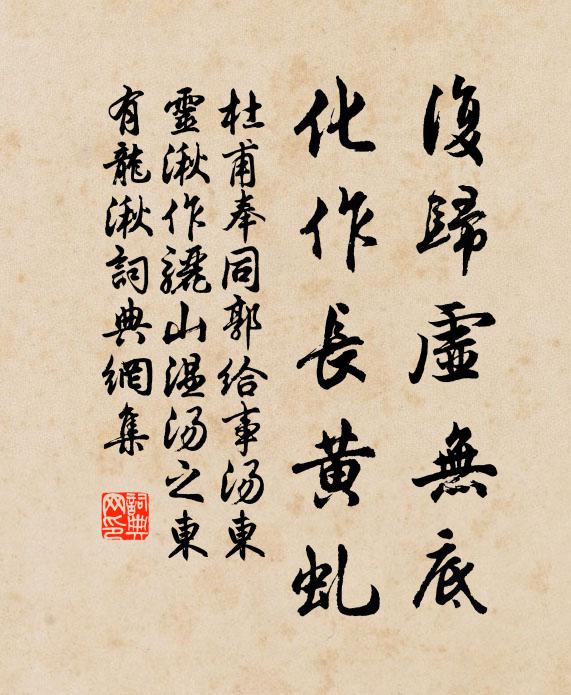 復歸虛無底
化作長黃虬
杜甫奉同郭給事湯東
靈湫作驪山温湯之東
有龍湫詞典網集
詞典网印